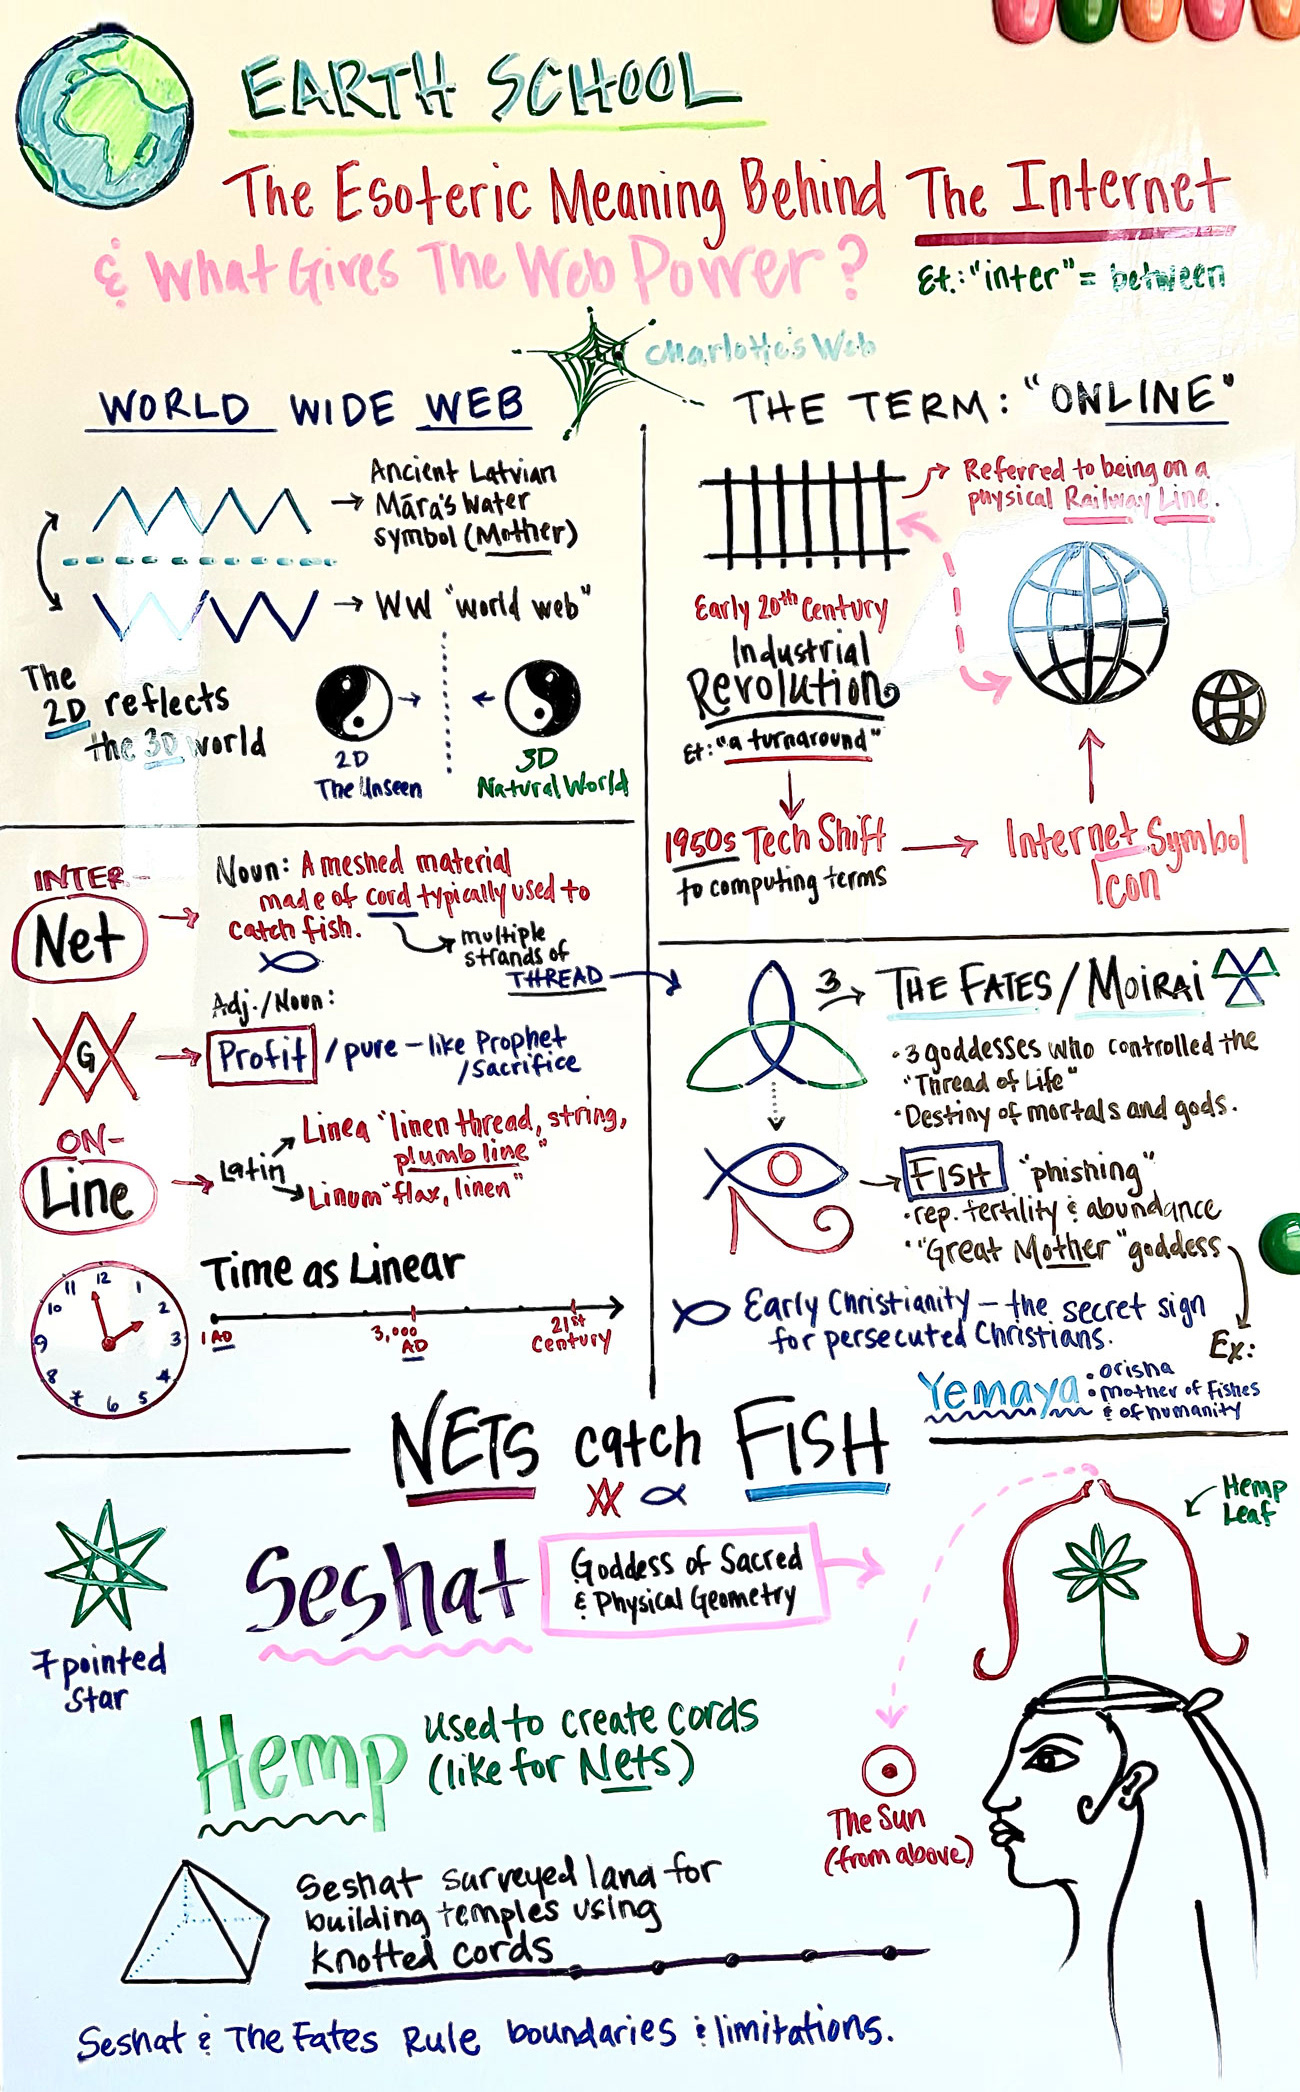 EARTH SCHOOL
The Esoteric Meaning Behind The Internet
& What Gives The Web Power?
Et.: "inter" = between
Charlotte's Web
WORLD WIDE WEB
Ancient Latvian
Māra's Water
symbol (Mother)
WW "world web"
The
2D reflects
the 3D world
2D
The Unseen
3D
Natural World
THE TERM: "ONLINE"
Referred to being on a
physical Railway Line.
Early 20th Century
Industrial
Revolution
Et: "a turnaround"
1950s Tech Shift
to computing terms
Internet Symbol
Icon
INTER-
Net
Noun: A meshed material
made of cord typically used to
catch fish.
multiple
strands of
THREAD
Adj./Noun:
G
Profit / pure - like Prophet
/Sacrifice
ON-
Line
Latin
Linea "linen thread, string,
plumb line"
Linum "flax, linen"
Time as Linear
12
1
2
3
4
5
6
7
8
9
10
11
1 AD
3,000
AD
21st
Century
3
THE FATES / MOIRAI
• 3 goddesses who controlled the
"Thread of Life"
• Destiny of mortals and gods.
FISH "phishing"
• rep. fertility & abundance
• "Great Mother" goddess
Early Christianity - the secret sign
for persecuted Christians.
Ex:
Yemaya
• orisha
• mother of fishes
& of humanity
NETS catch FISH
7 pointed
star
Seshat
Goddess of Sacred
& Physical Geometry
Hemp
Leaf
Hemp used to create cords
(like for Nets)
The Sun
(from above)
Seshat surveyed land for
building temples using
knotted cords
Seshat & The Fates Rule boundaries & limitations.